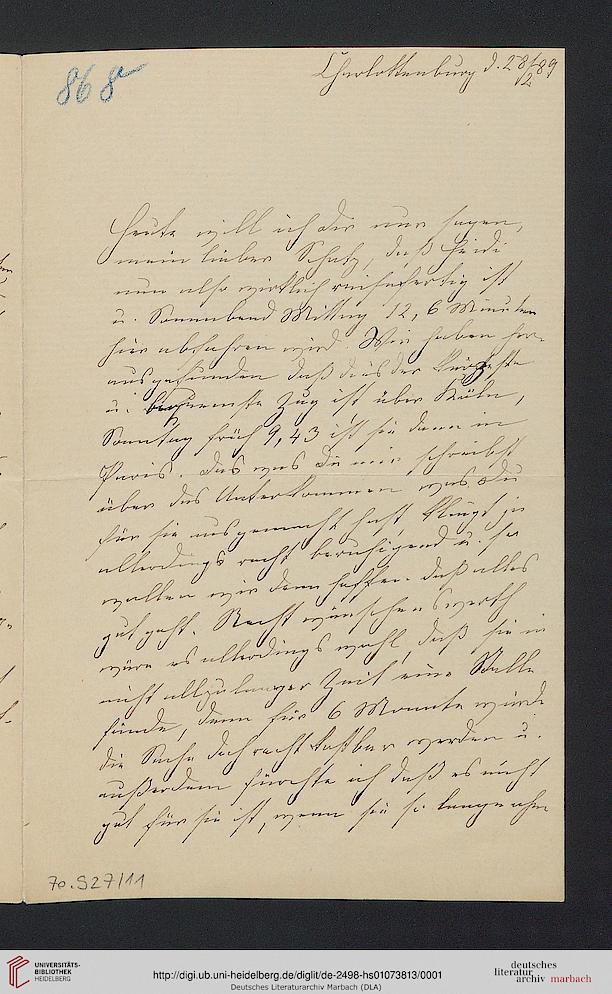 868
Charlottenburg d. 28/2 89
Heute will ich dir nur sagen,
mein lieber Schatz, daß Heidi
nun also wirklich reisefertig ist
u. Sonnabend Mittag 12,6 Minuten
hier abfahren wird. Wir haben her-
ausgefunden daß dies der kürzeste
u. bequemste Zug ist über Köln,
Sonntag früh 9,43 ist sie dann in
Paris. Das was Du mir schreibst
über das Unterkommen was Du
für sie ausgemacht hast klingt ja
allerdings recht beruhigend u. so
wollen wir denn hoffen daß alles
gut geht. Recht wünschenswerth
wäre es allerdings wohl, daß sie in
nicht allzulanger Zeit eine Stelle
fände, denn für 6 Monate würde
die Sache doch recht kostbar werden u.
außerdem fürchte ich daß es nicht
gut für sie ist, wenn sie so lange ohne
70.927/11
UNIVERSITÄTS-
BIBLIOTHEK
HEIDELBERG
http://digi.ub.uni-heidelberg.de/diglit/de-2498-hs01073813/0001
Deutsches Literaturarchiv Marbach (DLA)
deutsches
literatur
archiv marbach